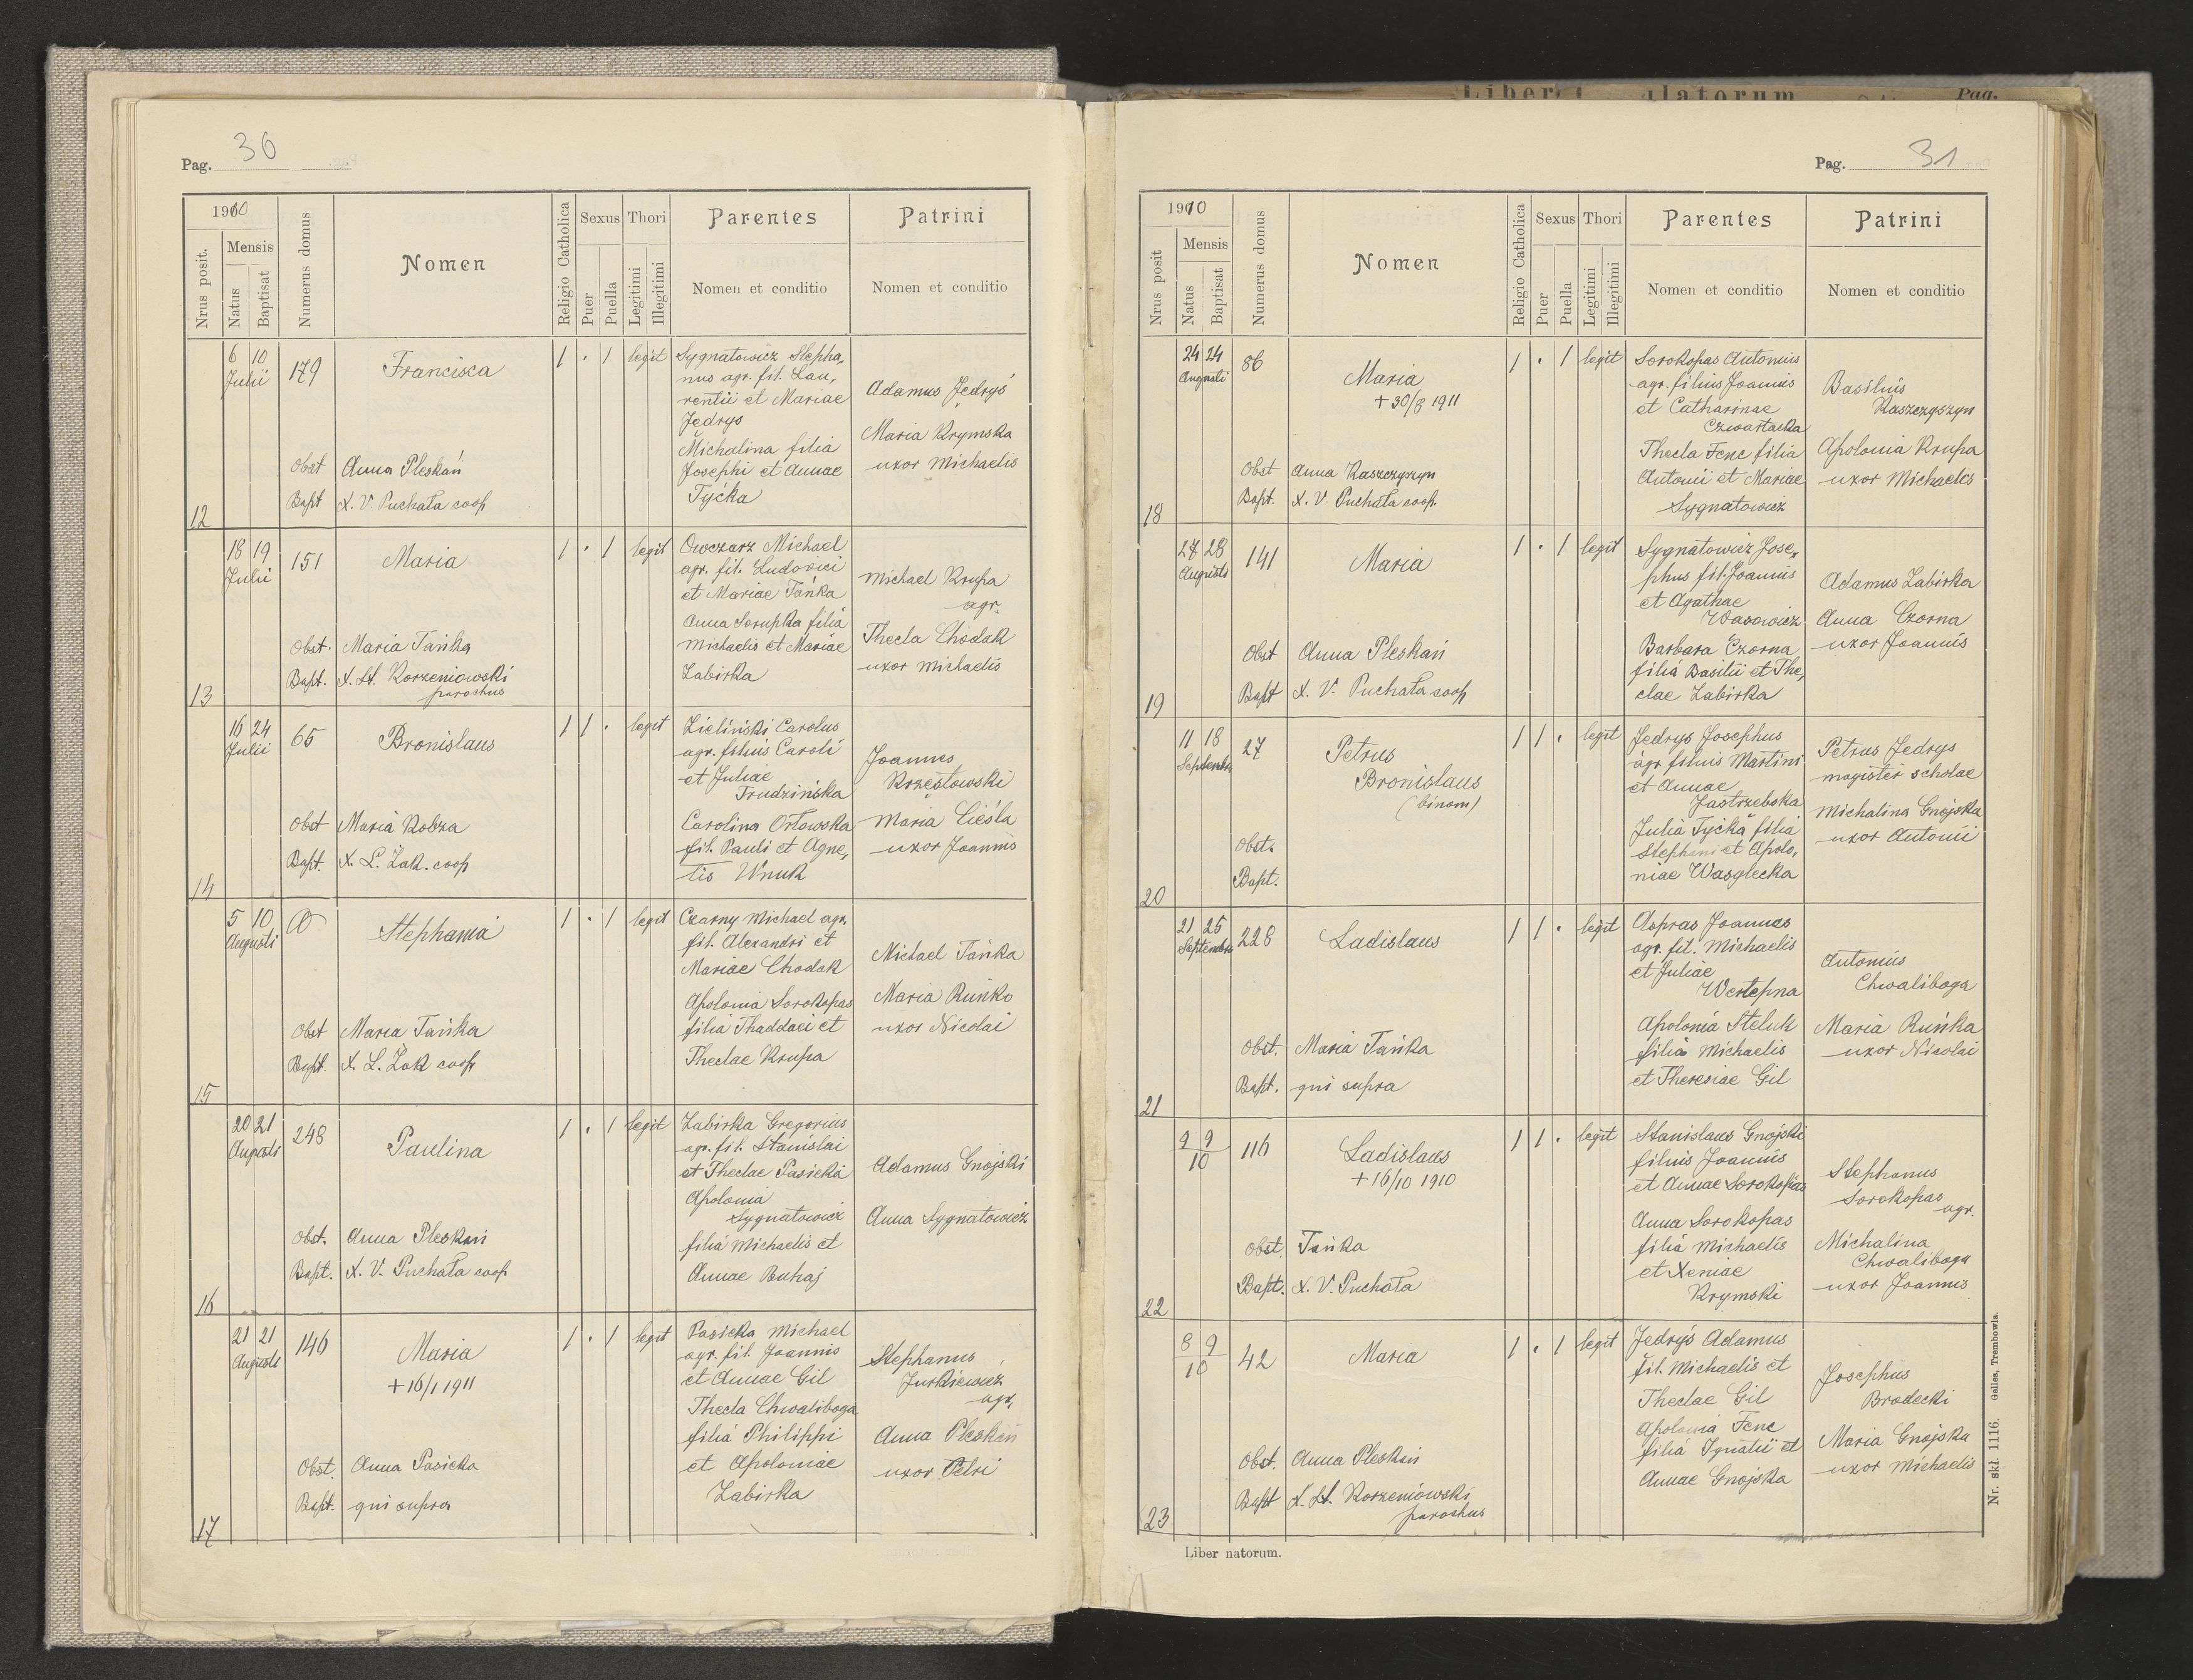 Pag. 30
1910
Nrus posit.
Mensis
Natus
Baptisat
Numerus domus
Nomen
Religio Catholica
Sexus
Puer
Puella
Thori
Legitimi
Illegitimi
Parentes
Nomen et conditio
Patrini
Nomen et conditio
12
6 10
Julii
179
Francisca
1 · 1 legit
Sygnatowicz Stepha,
nus agr. fil. Lau,
rentii et Mariae
Jedrys
Michalina filia
Josephi et Annae
Tyćka
Adamus Jedryś
Maria Krymska
uxor Michaelis
Obst Anna Pleskań
Bapt X. V. Puchała coop
13
18 19
Julii
151
Maria
1 · 1 legit
Owczarz Michael
agr. fil. Ludovici
et Mariae Tańka
Anna Sorupka filia
Michaelis et Mariae
Łabirka
Michael Krupa
agr.
Thecla Chodak
uxor Michaelis
Obst. Maria Tańka
Bapt. X. St. Korzeniowski
parochus
14
16 24
Julii
65
Bronislaus
1 1 · legit
Zieliński Carolus
agr. filius Caroli
et Juliae
Trudzińska
Carolina Orłowska
fil. Pauli et Agne,
tis Wnuk
Joannes
Krzesłowski
Maria Cieśla
uxor Joannis
Obst Maria Kobza
Bapt. X. L. Żak. coop
15
5 10
Augusti
Stephania
1 · 1 legit
Czarny Michael agr.
fil. Alexandri et
Mariae Chodak
Apolonia Sorokopas
filia Thaddaei et
Theclae Krupa
Michael Tańka
Maria Ruńko
uxor Nicolai
Obst Maria Tańka
Bapt. X. L. Żak coop
16
20 21
Augusti
248
Paulina
1 · 1 legit
Łabirka Gregorius
agr. fil. Stanislai
et Theclae Pasieka
Apolonia
Sygnatowicz
filia Michaelis et
Annae Buhaj
Adamus Gnojski
Anna Sygnatowicz
Obst. Anna Pleskań
Bapt. X. V. Puchała coop
17
21 21
Augusti
146
Maria
+ 16/1 1911
1 · 1 legit
Pasieka Michael
agr. fil. Joannis
et Annae Gil
Thecla Chwaliboga
filia Philippi
et Apoloniae
Łabirka
Stephanus
Jurkiewicz
agr.
Anna Pleskań
uxor Petri
Obst. Anna Pasieka
Bapt. qui supra
Pag. 31
1910
Nrus posit
Mensis
Natus
Baptisat
Numerus domus
Nomen
Religio Catholica
Sexus
Puer
Puella
Thori
Legitimi
Illegitimi
Parentes
Nomen et conditio
Patrini
Nomen et conditio
18
24 24
Augusti
86
Maria
+ 30/8 1911
1 · 1 legit
Sorokopas Antonius
agr. filius Joannis
et Catharinae
Czwartacka
Thecla Fenc filia
Antonii et Mariae
Sygnatowicz
Basilius
Kaszczyszyn
Apolonia Krupa
uxor Michaelis
Obst Anna Kaszczyszyn
Bapt. X. V. Puchała coop.
19
27 28
Augusti
141
Maria
1 · 1 legit
Sygnatowicz Jose,
phus fil. Joannis
et Agathae
Wasowicz
Barbara Czorna
filia Basilii et The,
clae Łabirka
Adamus Łabirka
Anna Czorna
uxor Joannis
Obst Anna Pleskań
Bapt X. V. Puchała coop
20
11 18
Septembr
27
Petrus
Bronislaus
(binom)
1 1 · legit
Jedrys Josephus
agr. filius Martini
et Annae
Jastrzebska
Julia Tyćka filia
Stephani et Apolo,
niae Wasylecka
Petrus Jedrys
magister scholae
Michalina Gnojska
uxor Antonii
Obst.
Bapt.
21
21 25
Septembr
228
Ladislaus
1 1 · legit
Aspras Joannes
agr. fil. Michaelis
et Juliae
Westepna
Apolonia Steluk
filia Michaelis
et Theresiae Gil
Antonius
Chwaliboga
Maria Ruńka
uxor Nicolai
Obst. Maria Tańka
Bapt. qui supra
22
9 9
10
116
Ladislaus
+ 16/10 1910
1 1 · legit
Stanislaus Gnojski
filius Joannis
et Annae Sorokopas
Anna Sorokopas
filia Michaelis
et Xeniae
Krymski
Stephanus
Sorokopas
agr.
Michalina
Chwaliboga
uxor Joannis
Obst. Tańka
Bapt. X. V. Puchała
23
8 9
10
42
Maria
1 · 1 legit
Jedryś Adamus
fil. Michaelis et
Theclae Gil
Apolonia Fenc
filia Ignatii et
Annae Gnojska
Josephus
Brodecki
Maria Gnojska
uxor Michaelis
Obst. Anna Pleskań
Bapt X. St. Korzeniowski
parochus
Liber natorum.
Nr. skł. 1116. Gelles, Trembowla.
Pag.